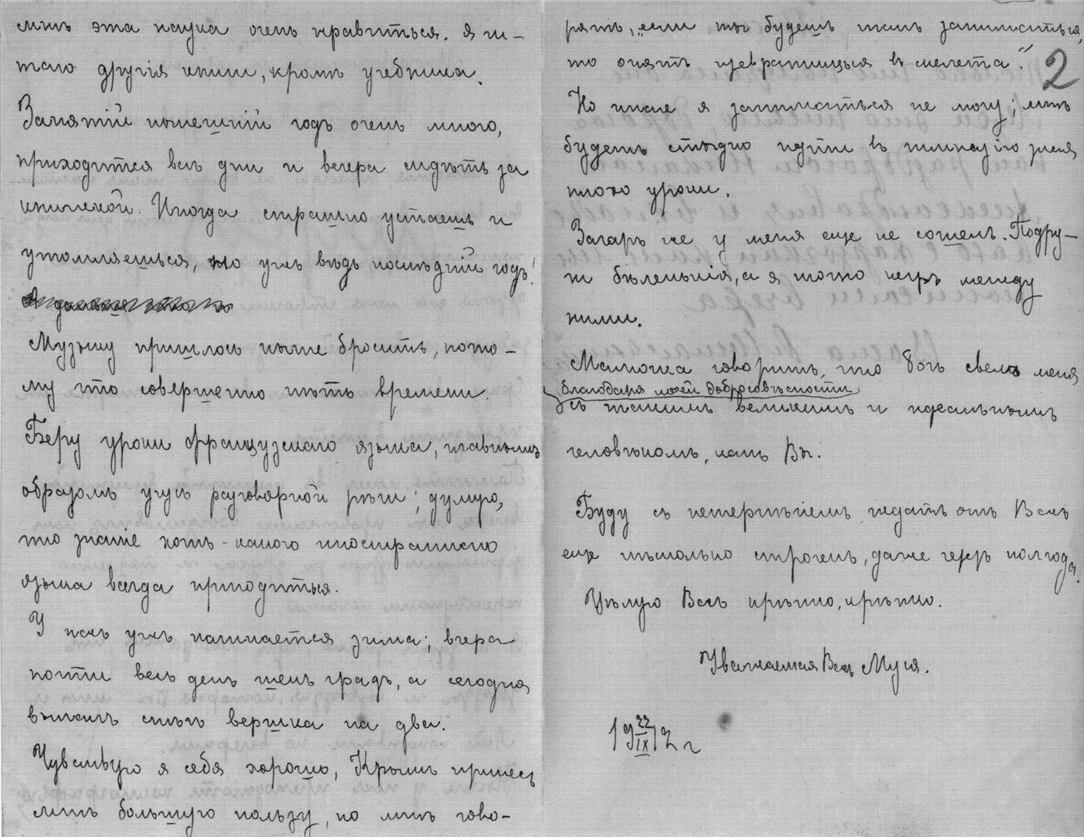 мнѣ эта наука очень нравиться. Я чи-
таю другія книги, кромѣ учебника.
Занятій нынешній годъ очень много,
приходится всѣ дни и вечера сидѣть за
книжкой. Иногда страшно устаешь и
утомляешься, но ужъ вѣдь послѣдній годъ!
Музыку пришлось нынѣ бросить, пото-
му что совершенно нѣтъ времени.
Беру уроки французскаго языка, главнымъ
образомъ учусь разговорной рѣчи; думаю,
что знаніе хоть-какого иностраннаго
языка всегда пригодиться.
У насъ ужъ начинается зима; вчера
почти весь день шелъ градъ, а сегодня
выпалъ снѣгъ вершка на два.
Чувствую я себя хорошо, Крымъ принесъ
мнѣ большую пользу, но мнѣ гово-
рятъ, „если ты будешь такъ заниматься,
то опять превратишься въ скелета“.
2
Но иначе я заниматься не могу, мнѣ
будетъ стыдно идти въ гимназію зная
плохо уроки.
Загаръ же у меня еще не сошелъ. Подру-
ги бѣленькія, а я точно негръ между
ними.
Мамочка говоритъ, что Богъ свелъ меня
благодаря моей добросовѣстности
съ такимъ великимъ и идеальнымъ
человѣкомъ, какъ Вы.
Буду съ нетерпѣніемъ ждать отъ Васъ
еще нѣсколько строчекъ, даже черезъ полгода.
Цѣлую Васъ крѣпко, крѣпко.
Уважающая Васъ Муся.
19 22/IX 12 г